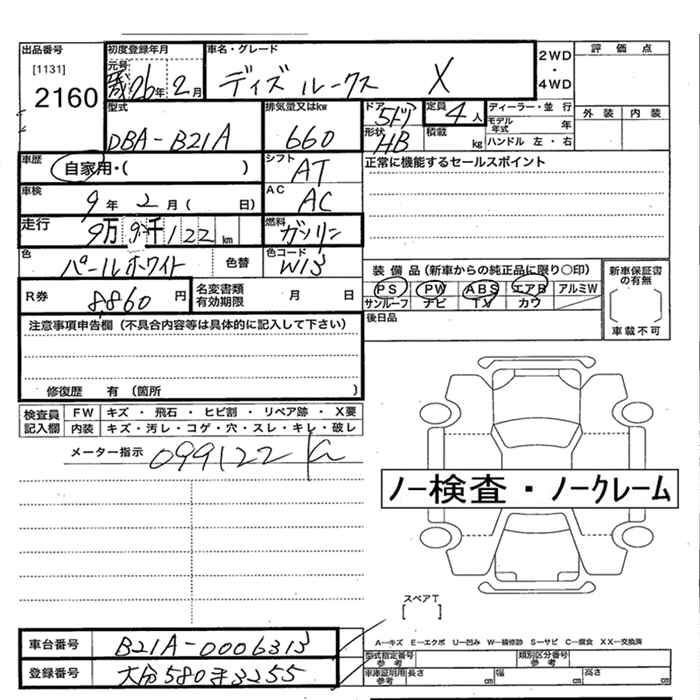 出品番号
[1131]
2160
初度登録年月
元号
26年 2月
車名・グレード
ディズ ルークス X
2WD
・
4WD
評価点
外装 内装
型式
DBA-B21A
排気量又はkw
660
ドア
5ドア
形状
HB
定員
4人
積載
kg
ディーラー・並行
モデル年式 年
ハンドル 左・右
車歴
自家用・( )
シフト
AT
正常に機能するセールスポイント
車検
9年 2月( 日)
AC
AC
走行
9万 9千 122 km
燃料
ガソリン
色
パールホワイト
色替
色コード
W13
R券
8,860円
名変書類
有効期限
月 日
装備品(新車からの純正品に限り○印)
PS PW ABS エアB アルミW
サンルーフ ナビ TV カワ
新車保証書
の有無
車載不可
後日品
注意事項申告欄(不具合内容等は具体的に記入して下さい)
修復歴 有(箇所 )
検査員
記入欄
FW キズ・飛石・ヒビ割・リペア跡・X要
内装 キズ・汚レ・コゲ・穴・スレ・キレ・破レ
メーター指示 099122
ノー検査・ノークレーム
スペアT
[ ]
車台番号 B21A-0006313
登録番号 大分580ま3255
A-キズ E-エクボ U-凹み W-補修跡 S-サビ C-腐食 XX-交換済
型式指定番号
参考
類別区分番号
参考
車庫証明用
参考
長さ cm 幅 cm 高さ cm